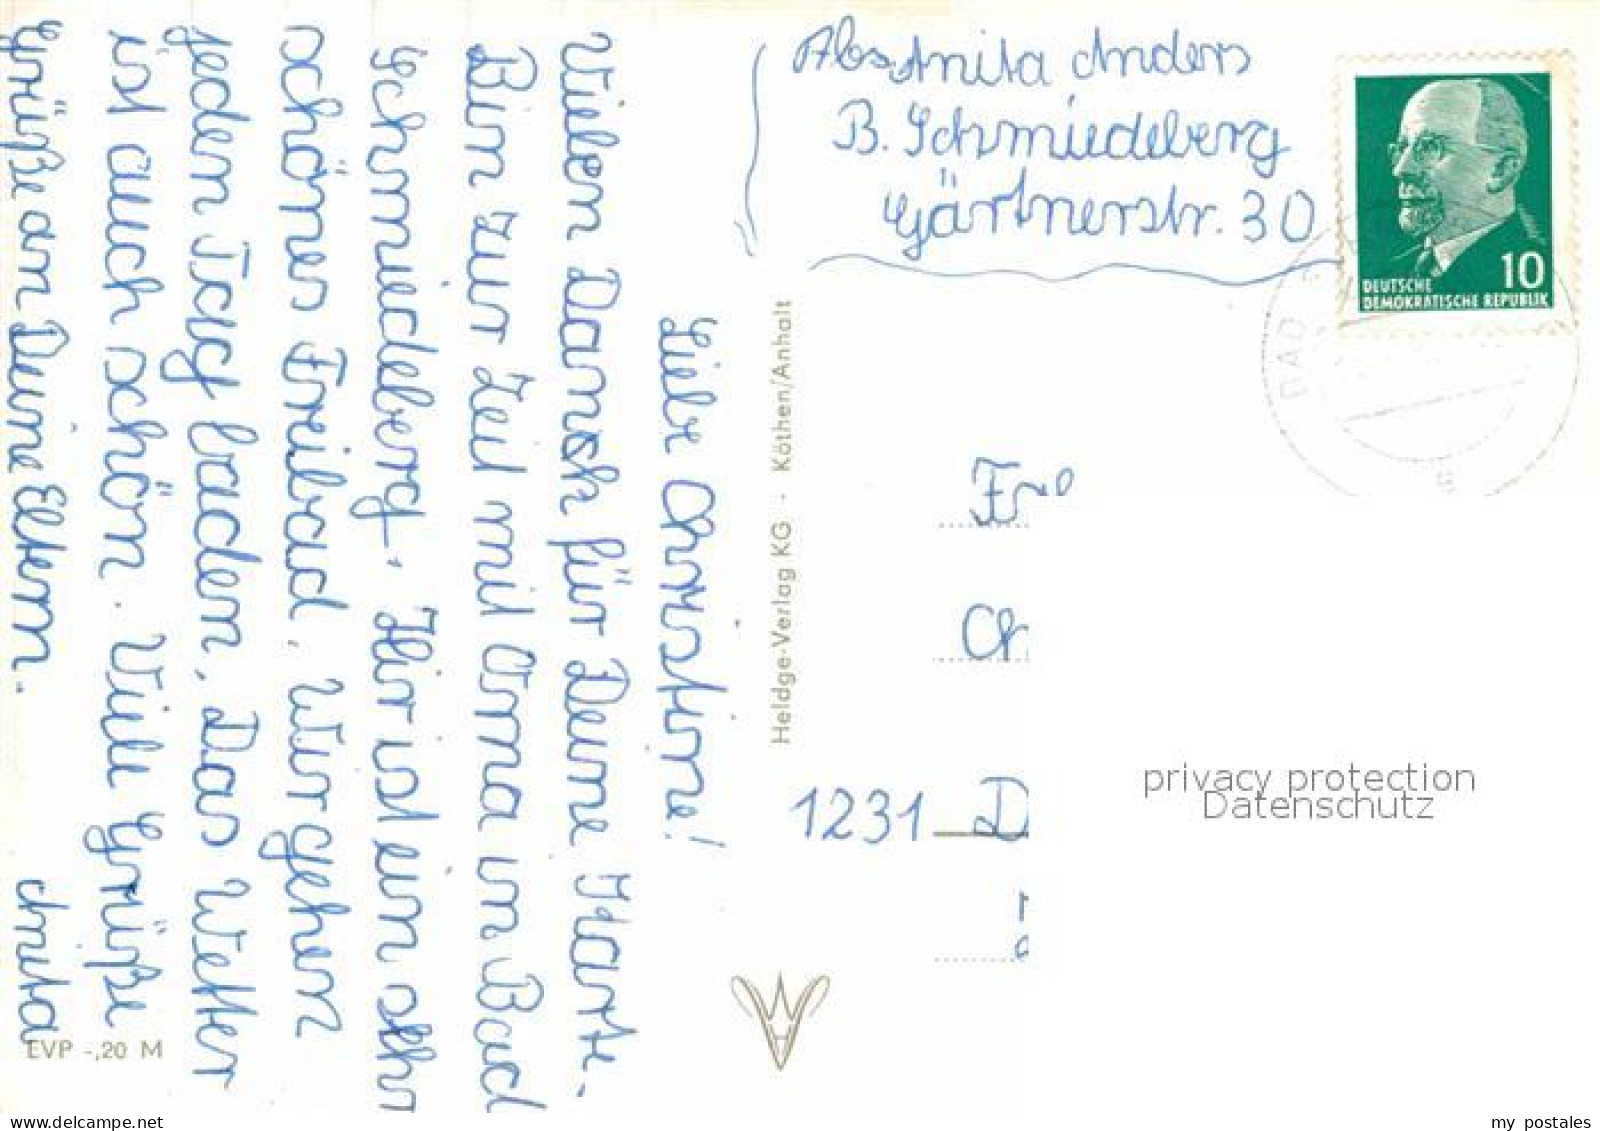 Abs. Anita Anders
B. Schmiedeberg
Gärtnerstr. 30
DEUTSCHE
DEMOKRATISCHE REPUBLIK
10
BAD
Liebe Christine!
Vielen Dank für Deine Karte.
Bin zur Zeit mit Oma in Bad
Schmiedeberg. Hir ist ein sehr
schönes Freibad. Wir gehen
jeden Tag baden. Das Wetter
ist auch schön. Viele Grüße
Grüße an Deine Eltern. Anita
Heldge-Verlag KG - Köthen/Anhalt
Fr
Chr
1231 D
privacy protection
Datenschutz
EVP -,20 M
www.delcampe.net
my_postales